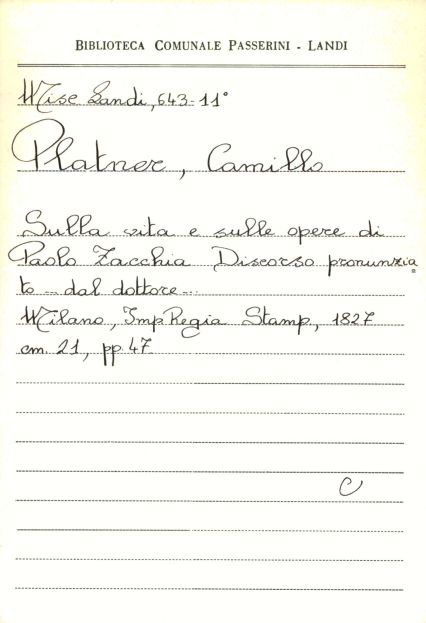 BIBLIOTECA COMUNALE PASSERINI - LANDI
Misc Landi, 643-11°
Platner, Camillo
Sulla vita e sulle opere di
Paolo Zacchia Discorso pronunzia
to ... dal dottore...
Milano, Imp Regia Stamp, 1827
cm. 21, pp. 47
C